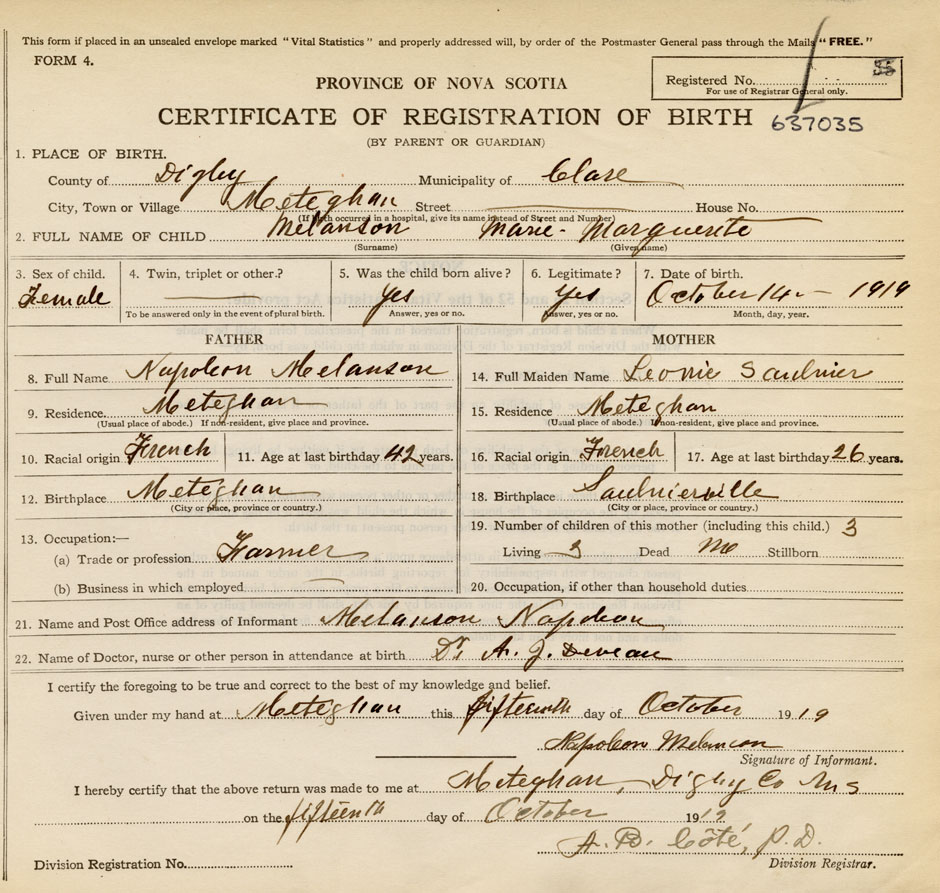 This form if placed in an unsealed envelope marked "Vital Statistics" and properly addressed will, by order of the Postmaster General pass through the Mails "FREE."
FORM 4.
PROVINCE OF NOVA SCOTIA
Registered No.
For use of Registrar General only.
CERTIFICATE OF REGISTRATION OF BIRTH 637035
(BY PARENT OR GUARDIAN)
1. PLACE OF BIRTH.
County of Digby Municipality of Clare
City, Town or Village Meteghan Street House No.
(If birth occurred in a hospital, give its name instead of Street and Number)
2. FULL NAME OF CHILD Melanson Marie-Marguerite
(Surname) (Given name)
3. Sex of child. 4. Twin, triplet or other? 5. Was the child born alive? 6. Legitimate? 7. Date of birth.
Female Yes Yes October 14 - 1919
To be answered only in the event of plural birth. Answer, yes or no. Answer, yes or no. Month, day, year.
FATHER MOTHER
8. Full Name Napoleon Melanson 14. Full Maiden Name Leonie Saulnier
9. Residence. Meteghan 15. Residence Meteghan
(Usual place of abode.) If non-resident, give place and province. (Usual place of abode.) If non-resident, give place and province.
10. Racial origin French 11. Age at last birthday 42 years. 16. Racial origin French 17. Age at last birthday 26 years.
12. Birthplace Meteghan 18. Birthplace Saulnierville
(City or place, province or country.) (City or place, province or country.)
13. Occupation:— 19. Number of children of this mother (including this child.) 3
(a) Trade or profession Farmer Living 3 Dead Stillborn
(b) Business in which employed 20. Occupation, if other than household duties
21. Name and Post Office address of Informant Melanson Napoleon
22. Name of Doctor, nurse or other person in attendance at birth Dr. A. J. Deveau
I certify the foregoing to be true and correct to the best of my knowledge and belief.
Given under my hand at Meteghan this fifteenth day of October 1919
Napoleon Melanson
Signature of Informant.
I hereby certify that the above return was made to me at Meteghan, Digby Co NS
on the fifteenth day of October 1919
A. B. Côté, P.D.
Division Registration No. Division Registrar.